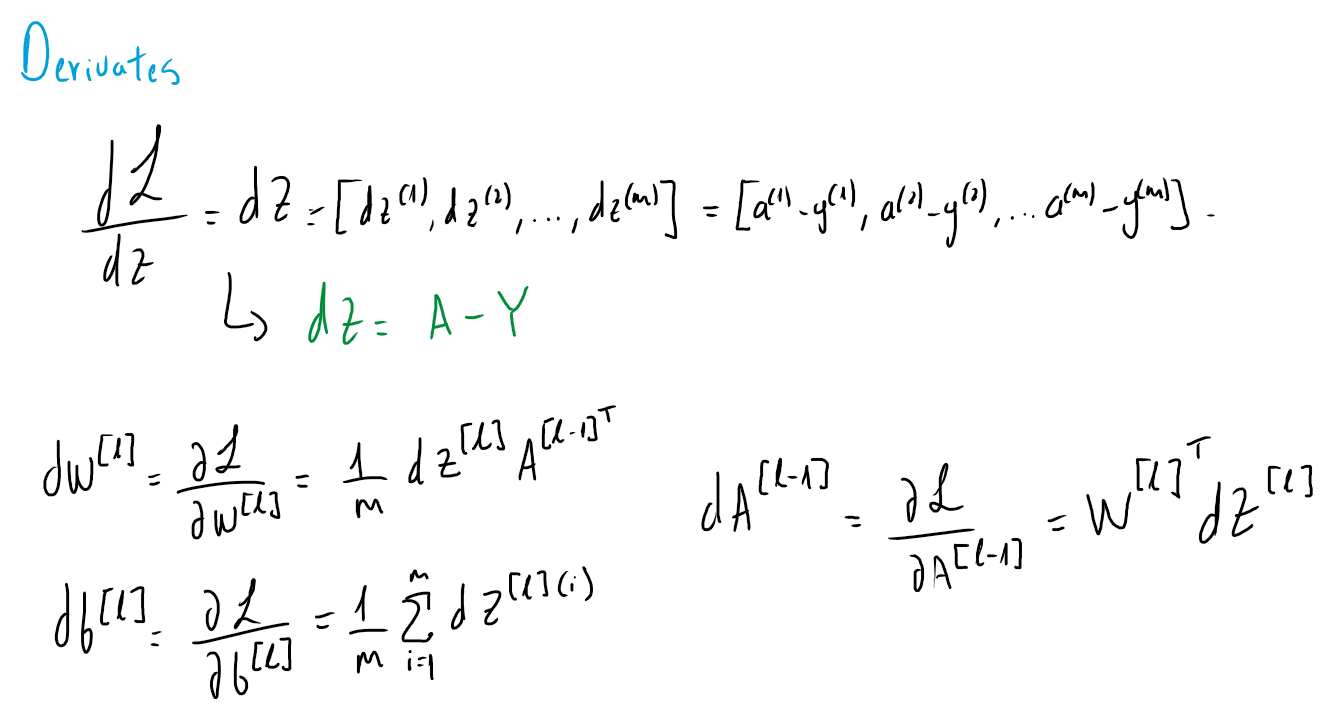 Derivates
dℒ/dz = dZ = [dz⁽¹⁾, dz⁽²⁾, ..., dz⁽ᵐ⁾] = [a⁽¹⁾ - y⁽¹⁾, a⁽²⁾ - y⁽²⁾, ... a⁽ᵐ⁾ - y⁽ᵐ⁾].
↳ dz = A - Y
dW^[l] = ∂ℒ/∂W^[l] = 1/m dz^[l] A^[l-1]^T
dA^[l-1] = ∂ℒ/∂A^[l-1] = W^[l]^T dZ^[l]
db^[l] = ∂ℒ/∂b^[l] = 1/m ∑_{i=1}^{m} dz^[l](i)